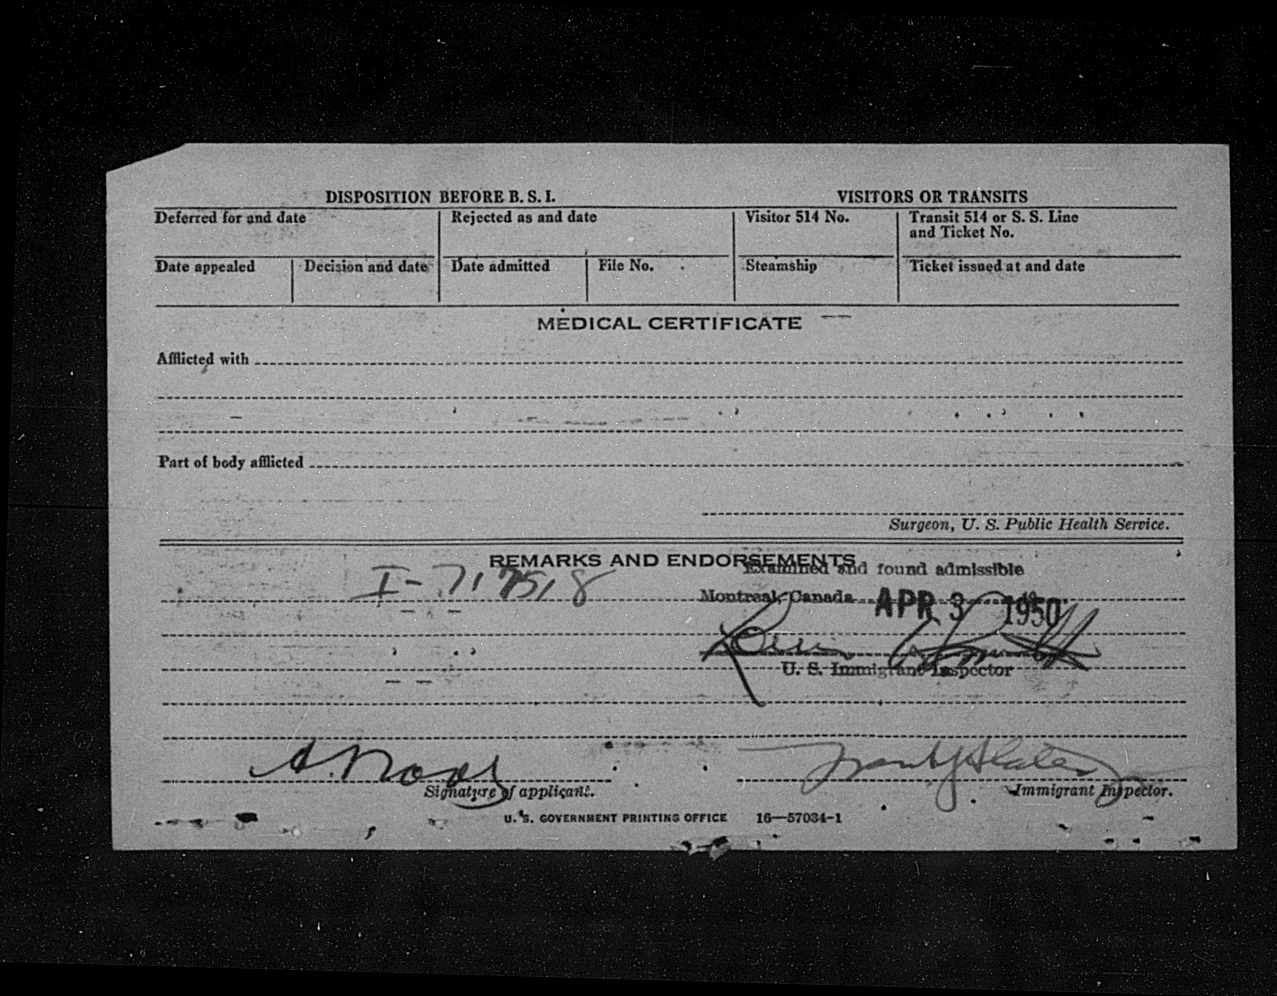 DISPOSITION BEFORE B. S. I. VISITORS OR TRANSITS
Deferred for and date Rejected as and date Visitor 514 No. Transit 514 or S. S. Line and Ticket No.
Date appealed Decision and date Date admitted File No. Steamship Ticket issued at and date
MEDICAL CERTIFICATE
Afflicted with
Part of body afflicted
Surgeon, U. S. Public Health Service.
REMARKS AND ENDORSEMENTS
Examined and found admissible
I-717518
Montreal, Canada APR 3 1950
U. S. Immigrant Inspector
A.
Signature of applicant. Immigrant Inspector.
U. S. GOVERNMENT PRINTING OFFICE 16—57034-1